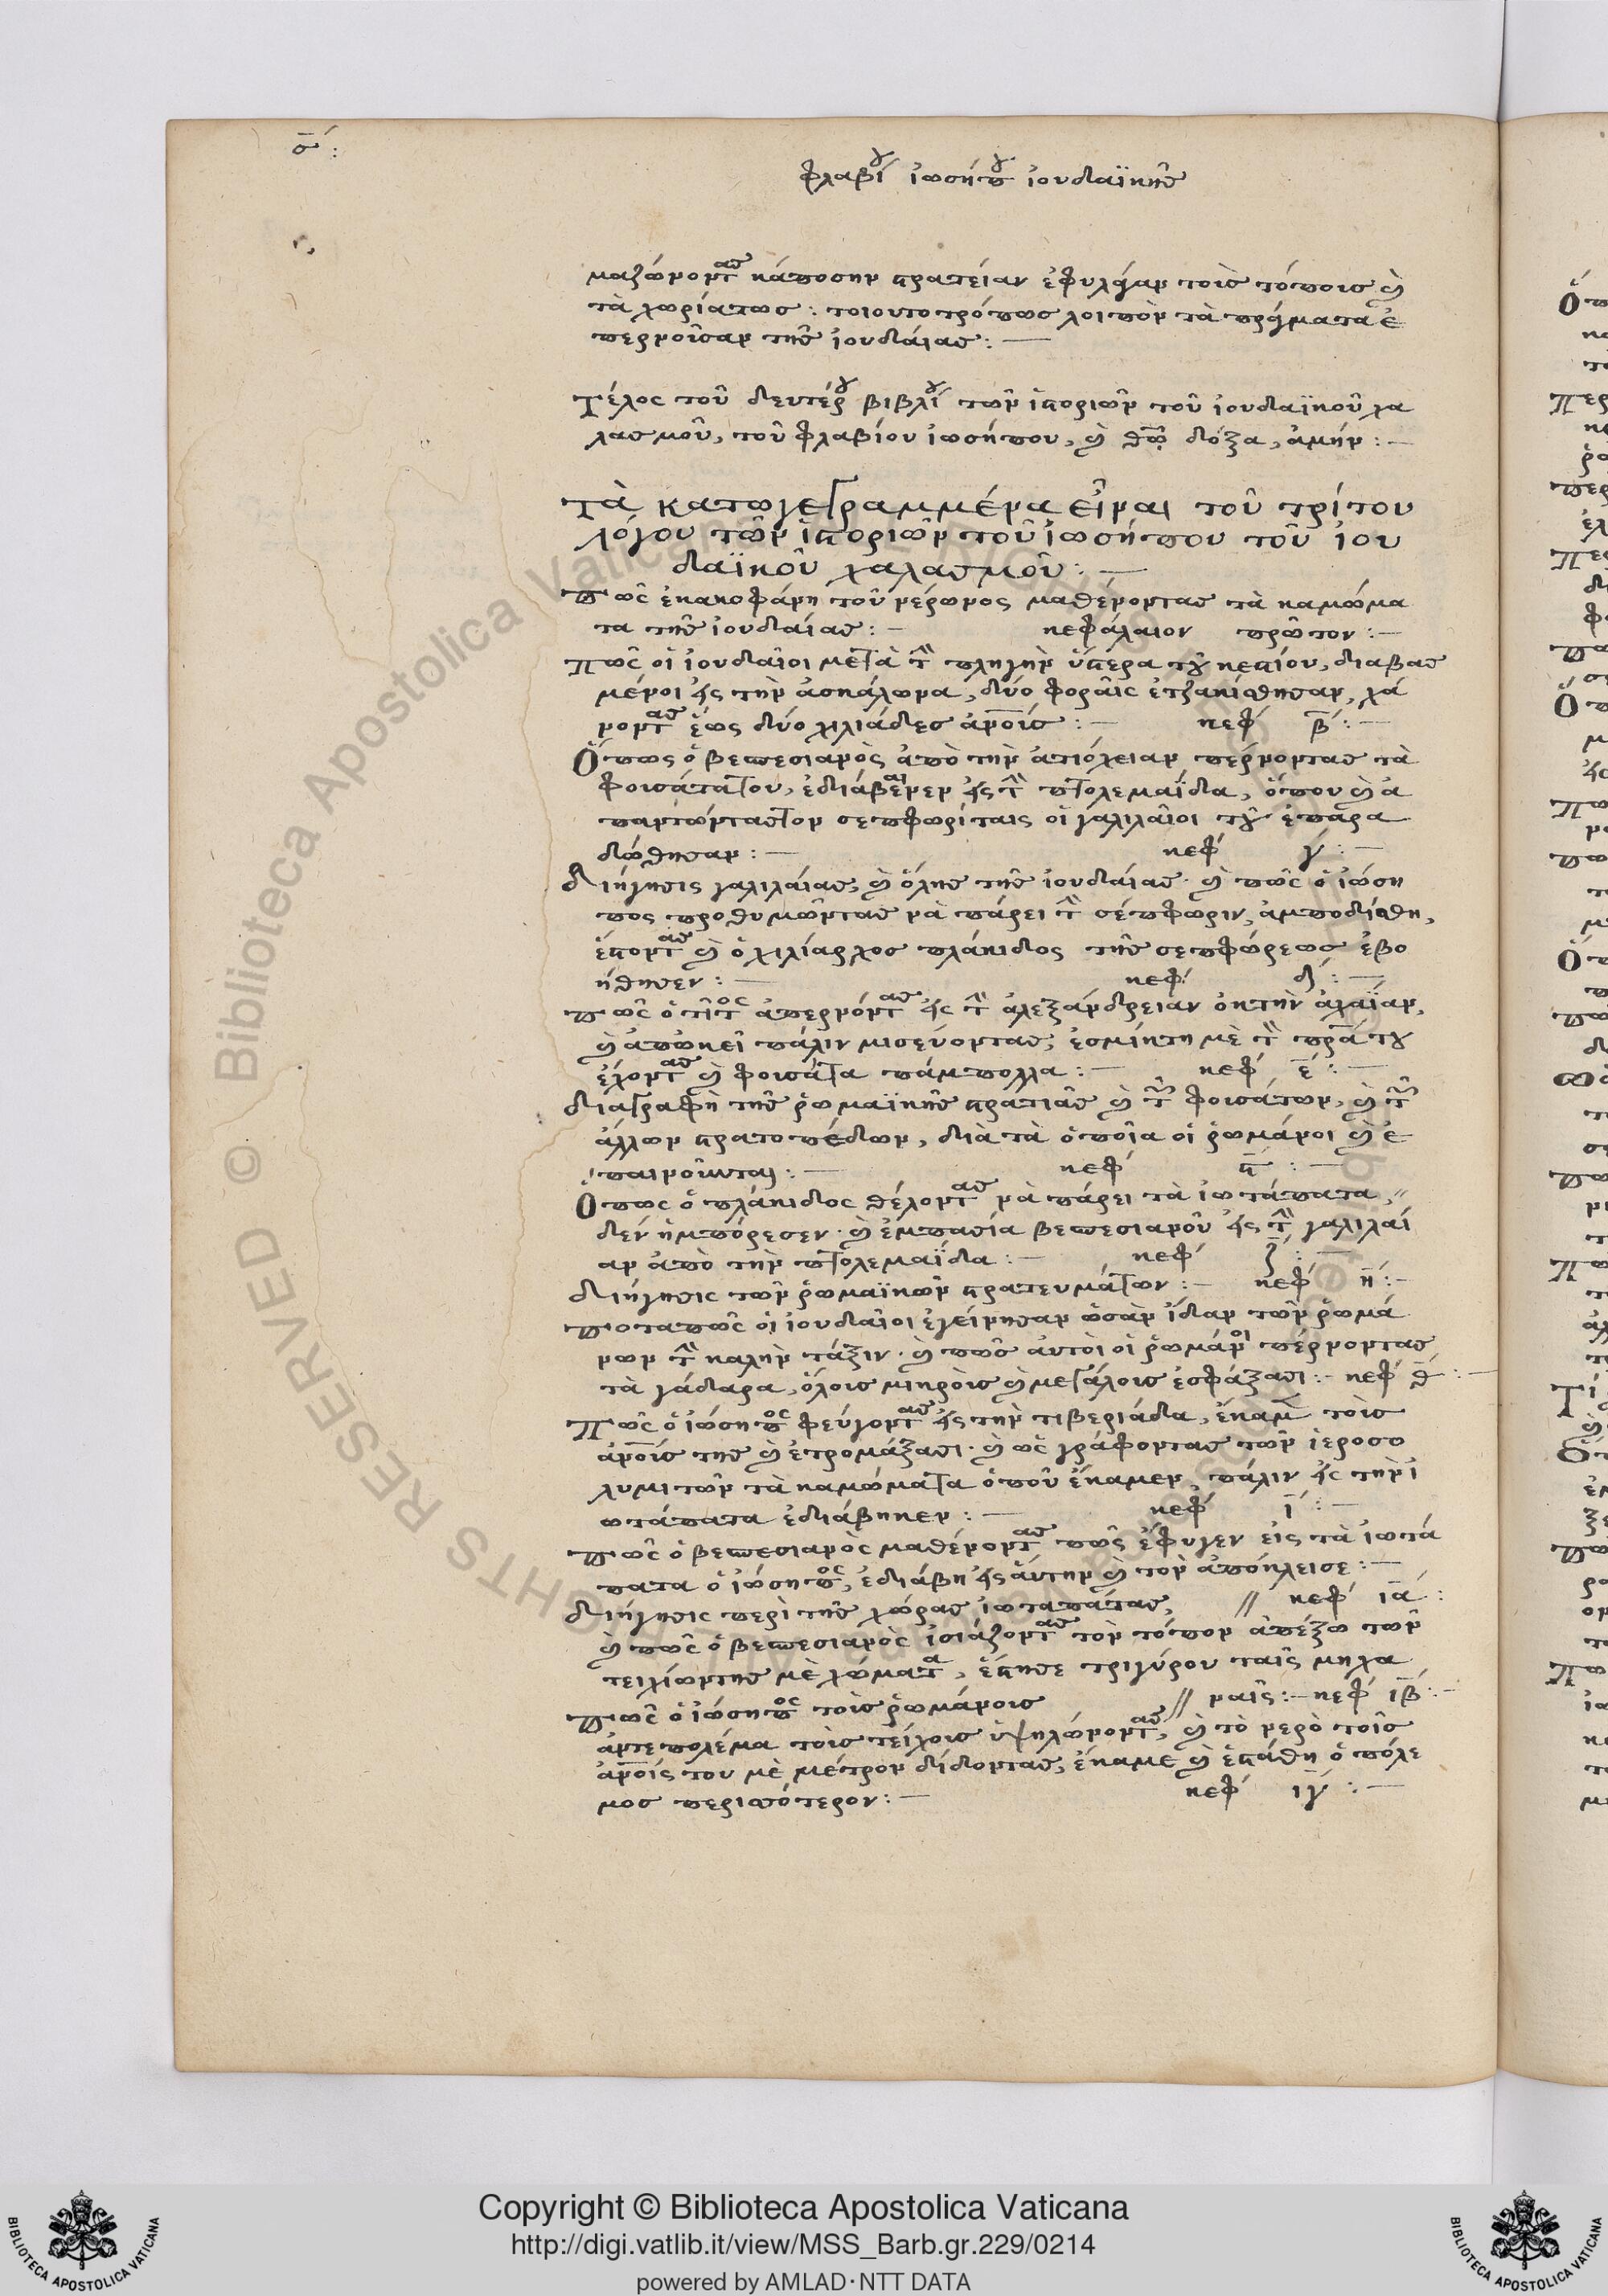 σ̄:
φλαβίου ἰωσήπου ἰουδαϊκῆς
μαζώνοντας κάποσην στρατείαν ἐφυλάγαν τοὶς τόποις καὶ
τὰ χωρίατως: τοιουτοτρόπως λοιπὸν τὰ πράγματα ἐ
περνοῦσαν τῆς ἰουδαίας:—
Τέλος τοῦ δευτέρου βιβλίου τῶν ἱστοριῶν τοῦ ἰουδαϊκοῦ χα
λασμοῦ, τοῦ φλαβίου ἰωσήπου, καὶ θῶ δόξα, ἀμήν:—
Τὰ κατωγεγραμμένα εἶναι τοῦ τρίτου
λόγου τῶν ἱστοριῶν τοῦ ἰωσήπου τοῦ ἰου
δαϊκοῦ χαλασμοῦ:—
Πῶς ἐκακοφάνη τοῦ νέρωνος μαθένοντας τὰ καμώμα
τα τῆς ἰουδαίας:— κεφάλαιον πρῶτον:—
Πῶς οἱ ἰουδαῖοι μετὰ τὴν πληγὴν ὕστερα τοῦ κεστίου, διαβασ
μένοι εἰς τὴν ἀσκάλωνα, δύο φοραῖς ἐτζακίσθησαν, χά
νοντας ἕως δύο χιλιάδες ἀνοίς:— κεφ β̄:—
Ὅπως ὁ βεσπεσιανὸς ἀπὸ τὴν ἀτιόχειαν πέρνοντας τὰ
φουσάτατου, ἐδιάβαινεν εἰς τὴν πτολεμαΐδα, ὅπου καὶ ἀ
παντώντας τον σεπφωρίταις οἱ γαλιλαῖοι τοῦ ἐπαρα
δώθησαν:— κεφ γ:—
Διήγησις γαλιλαίας, καὶ ὅλης τῆς ἰουδαίας· καὶ πῶς ὁ ἰώση
πος προθυμῶντας νὰ πάρει τὴν σέπφωριν, ἀμποδίσθη,
ἔστοντας καὶ ὁ χιλίαρχος πλάκιδος τῆς σεπφώρεως ἐβο
ήθησεν:— κεφ δ:—
Πῶς ὁ τίτος ἀπερνόντας εἰς τὴν ἀλεξάνδρειαν ὀκτὴν ἀχαΐαν,
καὶ ἀπὸ κεῖ πάλιν μισεύοντας, ἐσμίκτη μὲ τὸν πρα του
ἔχοντας καὶ φουσάτα πάμπολλα:— κεφ ε̄:—
Διαγραφὴ τῆς ῥωμαϊκῆς στρατιᾶς καὶ τῶν φουσάτων, καὶ τῶν
ἄλλων στρατοπέδων, διὰ τὰ ὁποῖα οἱ ῥωμάνοι καὶ ἐ
παινοῦνται:— κεφ ϛ̄:—
Ὅπως ὁ πλάκιδος θέλοντας νὰ πάρει τὰ ἰωτάπατα,"
δεν ἠμπόρεσεν· καὶ ἐμπασία βεσπεσιανοῦ εἰς τὴν γαλιλαί
αν ἀπὸ τὴν πτολεμαΐδα:— κεφ ζ:—
Διήγησις τῶν ῥωμαϊκῶν στρατευμάτων:— κεφ η̄:—
Ποταπῶς οἱ ἰουδαῖοι ἐγείρησαν ὡσὰν ἴδαν τῶν ῥωμά
νων τὴν καλὴν τάξιν· καὶ πῶς αὐτοὶ οἱ ῥωμάνοι πέρνοντας
τὰ γάδαρα, ὅλοις μικροὶς καὶ μεγάλοις ἐσφάξασι:— κεφ θ̄:—
Πῶς ὁ ἰώσηπος φεύγοντας εἰς τὴν τιβεριάδα, ἔκαμε τοὶς
ἀνοίς της καὶ ἐτρομάξασι· καὶ ὡς γράφοντας τῶν ἱεροσο
λυμιτῶν τὰ καμώματα ὁποῦ ἔκαμεν, πάλιν εἰς τὴν ἰ
ωτάπατα ἐδιάβηκεν:— κεφ ῑ:—
Πῶς ὁ βεσπεσιανὸς μαθένοντας πῶς ἔφυγεν εἰς τὰ ἰωτά
πατα ὁ ἰώσηπος, ἐδιάβη εἰς αὐτην καὶ τὸν ἀπόκλεισε:—
Διήγησις περὶ τῆς χώρας ἰωταπάτας, // κεφ ιᾱ:
καὶ πῶς ὁ βεσπεσιανὸς ἰσιάζοντας τὸν τόπον ἀπέξω τῶν
τειχίωντης μὲ χώματα, ἔστησε τριγύρου ταῖς μηχα
// ναῖς:— κεφ ιβ̄:—
Πῶς ὁ ἰώσηπος τοὶς ῥωμάνοις
ἀντεπολέμα τοὶς τείχοις ὑψηλώνοντας, καὶ τὸ νερὸ τοῖς
ἀνοίς του μὲ μέτρον δίδοντας, ἔκαμε καὶ ἐστάθη ὁ πόλε
μος περισσότερον:— κεφ ιγ̄:—
Copyright © Biblioteca Apostolica Vaticana
http://digi.vatlib.it/view/MSS_Barb.gr.229/0214
powered by AMLAD·NTT DATA